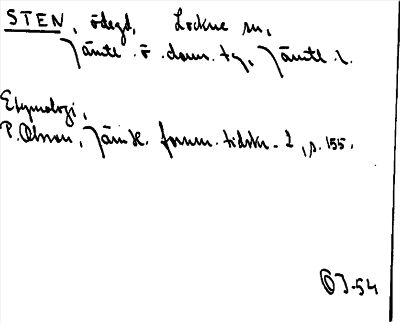 STEN, ödegd, Lockne sn,
Jämtl. ö. doms. tg, Jämtl. l.
Etymologi,
P. Olsson, Jämtl. fornm. tidskr. 2, s. 155.
OJ-54